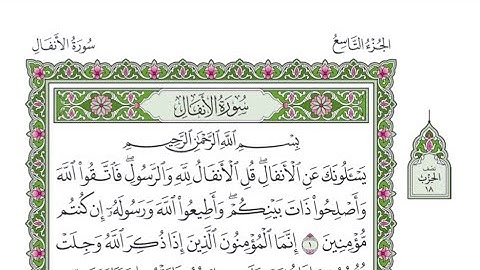 الجزء التاسع
سورة الأنفال
سُورَةُ الأَنفَالِ
بِسْمِ ٱللَّهِ ٱلرَّحْمَٰنِ ٱلرَّحِيمِ
يَسْـَٔلُونَكَ عَنِ ٱلْأَنفَالِۖ قُلِ ٱلْأَنفَالُ لِلَّهِ وَٱلرَّسُولِۖ فَٱتَّقُوا۟ ٱللَّهَ
وَأَصْلِحُوا۟ ذَاتَ بَيْنِكُمْۖ وَأَطِيعُوا۟ ٱللَّهَ وَرَسُولَهُۥٓ إِن كُنتُم
مُّؤْمِنِينَ ١ إِنَّمَا ٱلْمُؤْمِنُونَ ٱلَّذِينَ إِذَا ذُكِرَ ٱللَّهُ وَجِلَتْ
نصف
الحزب
١٨